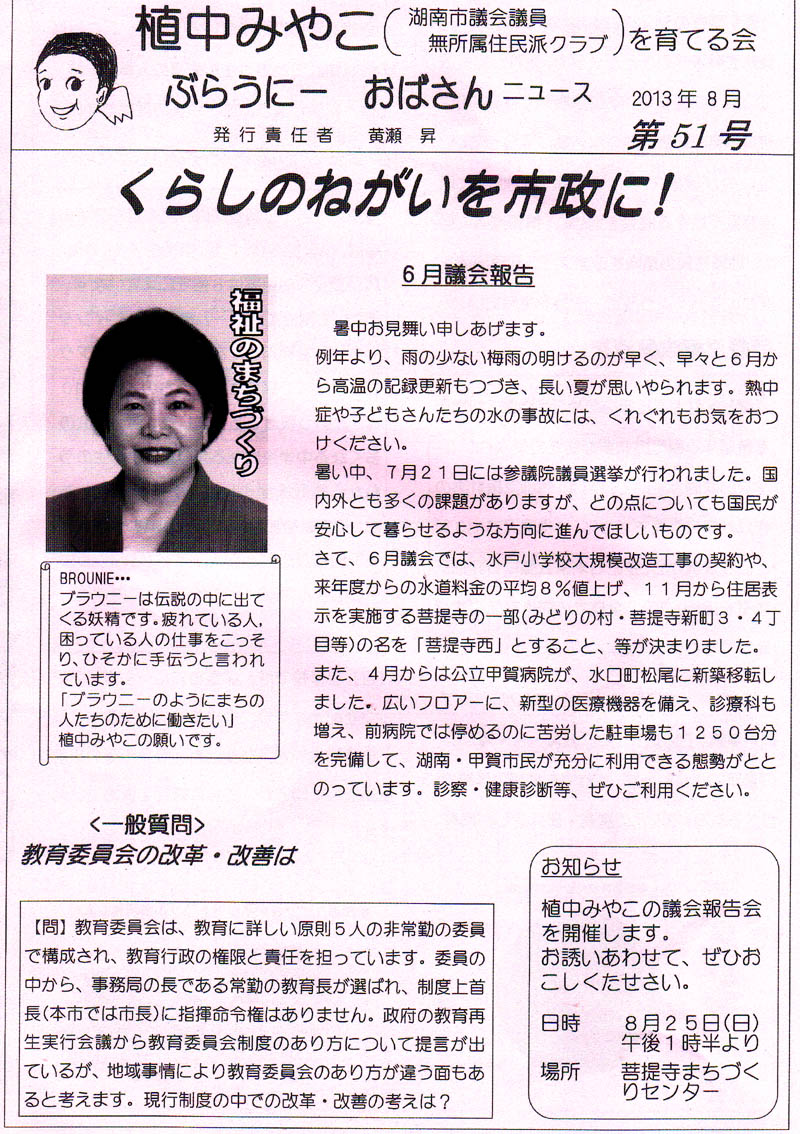 植中みやこ(湖南市議会議員
無所属住民派クラブ)を育てる会
ぶらうにー　おばさんニュース　2013年8月
発行責任者　黄瀬　昇　第51号
くらしのねがいを市政に！
福祉のまちづくり
BROUNIE…
ブラウニーは伝説の中に出て
くる妖精です。疲れている人，
困っている人の仕事をこっそ
り、ひそかに手伝うと言われ
ています。
「ブラウニーのようにまちの
人たちのために働きたい」
植中みやこの願いです。
６月議会報告
暑中お見舞い申しあげます。
例年より、雨の少ない梅雨の明けるのが早く、早々と６月か
ら高温の記録更新もつづき、長い夏が思いやられます。熱中
症や子どもさんたちの水の事故には、くれぐれもお気をおつ
けください。
暑い中、７月２１日には参議院議員選挙が行われました。国
内外とも多くの課題がありますが、どの点についても国民が
安心して暮らせるような方向に進んでほしいものです。
さて、６月議会では、水戸小学校大規模改造工事の契約や、
来年度からの水道料金の平均８％値上げ、１１月から住居表
示を実施する菩提寺の一部(みどりの村・菩提寺新町３・４丁
目等)の名を「菩提寺西」とすること、等が決まりました。
また、４月からは公立甲賀病院が、水口町松尾に新築移転し
ました。広いフロアーに、新型の医療機器を備え、診療科も
増え、前病院では停めるのに苦労した駐車場も１２５０台分
を完備して、湖南・甲賀市民が充分に利用できる態勢がとと
のっています。診察・健康診断等、ぜひご利用ください。
<一般質問>
教育委員会の改革・改善は
【問】教育委員会は、教育に詳しい原則５人の非常勤の委員
で構成され、教育行政の権限と責任を担っています。委員の
中から、事務局の長である常勤の教育長が選ばれ、制度上首
長(本市では市長)に指揮命令権はありません。政府の教育再
生実行会議から教育委員会制度のあり方について提言が出
ているが、地域事情により教育委員会のあり方が違う面もあ
ると考えます。現行制度の中での改革・改善の考えは？
お知らせ
植中みやこの議会報告会
を開催します。
お誘いあわせて、ぜひお
こしくたせさい。
日時　８月２５日(日)
午後１時半より
場所　菩提寺まちづく
りセンター